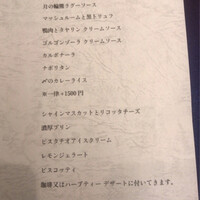 マッシュルームと黒トリュフ
鴨肉とリヤケン クリームソース
ゴルゴンゾーラ クリームソース
カルボナーラ
ナポリタン
〆のカレーライス
※一律＋1500円
シャインマスカットとリコッタチーズ
濃厚プリン
ピスタチオアイスクリーム
レモンジェラート
ビスコッティ
珈琲又はハーブティー デザートに付いてきます。